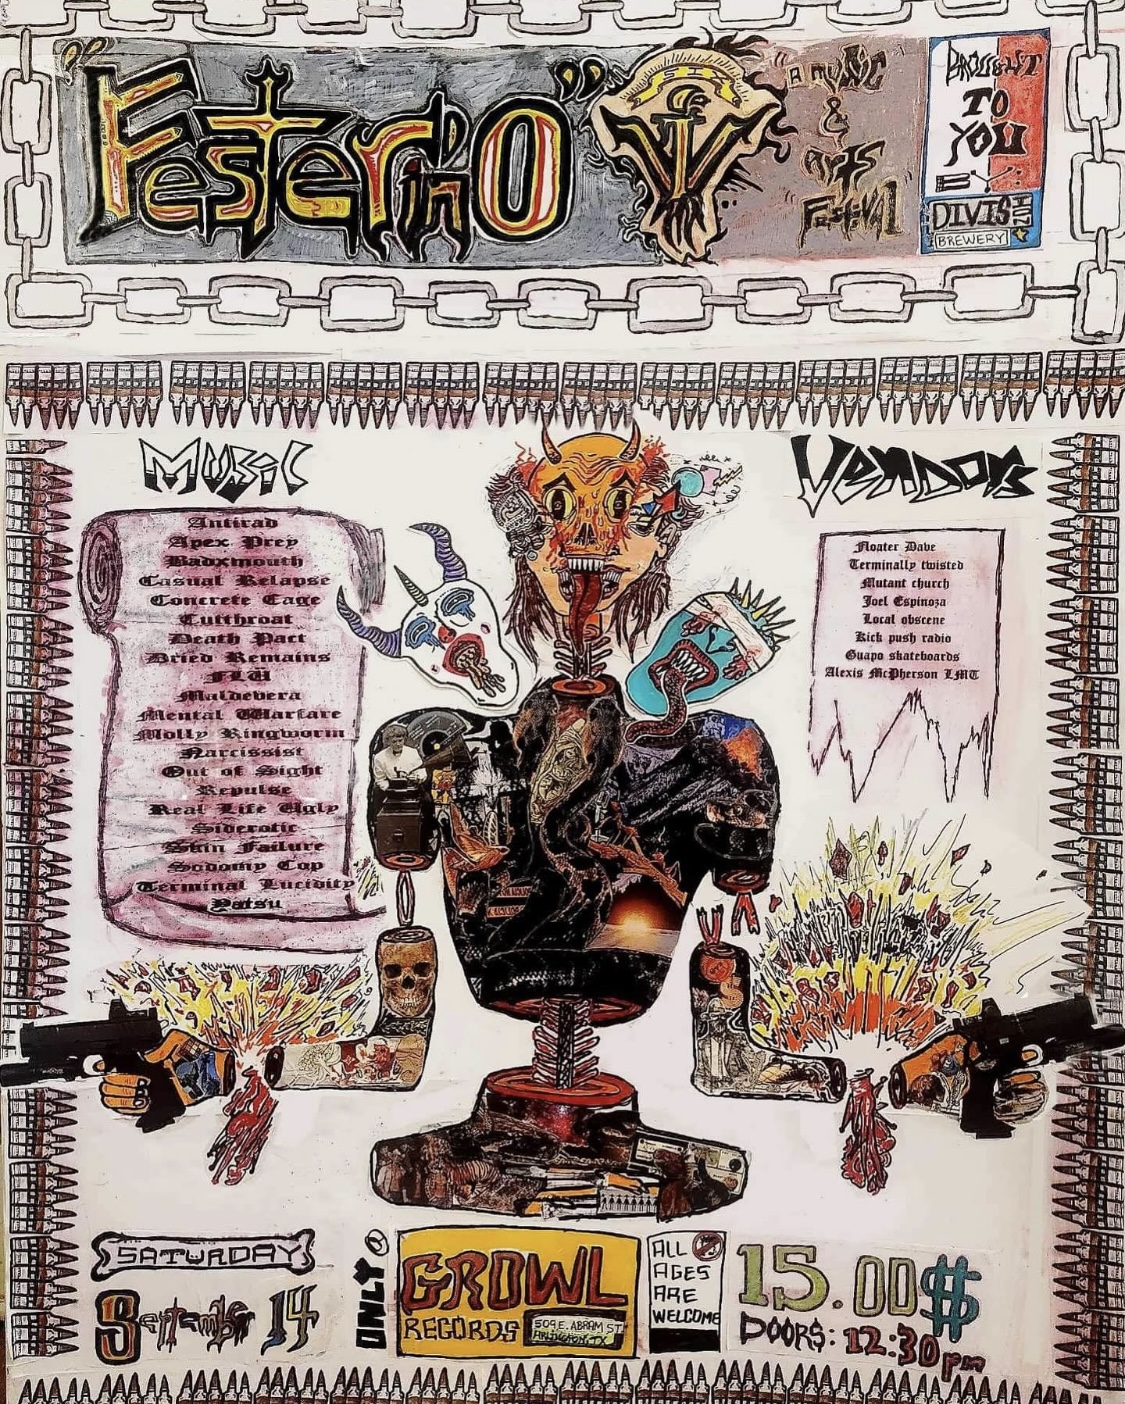 "Festerino"
SIX
VI
A MUSIC
&
ARTS
FESTIVAL
BROUGHT
TO
YOU
BY:
DIVISION
BREWERY
MUSIC
Antirad
Apex Prey
Badxmouth
Casual Relapse
Concrete Cage
Cutthroat
Death Pact
Dried Remains
FLU
Maldevera
Mental Warfare
Molly Ringworm
Narcissist
Out of Sight
Repulse
Real Life Ugly
Siderotic
Skin Failure
Sodomy Cop
Terminal Lucidity
Yatsu
Vendors
Floater Dave
Terminally twisted
Mutant church
Joel Espinoza
Local obscene
Kick push radio
Guapo skateboards
Alexis McPherson LMT
SATURDAY
September 14
ONLY @
GROWL
RECORDS
509 E. ABRAM ST
ARLINGTON, TX
ALL
AGES
ARE
WELCOME
15.00$
DOORS: 12:30pm